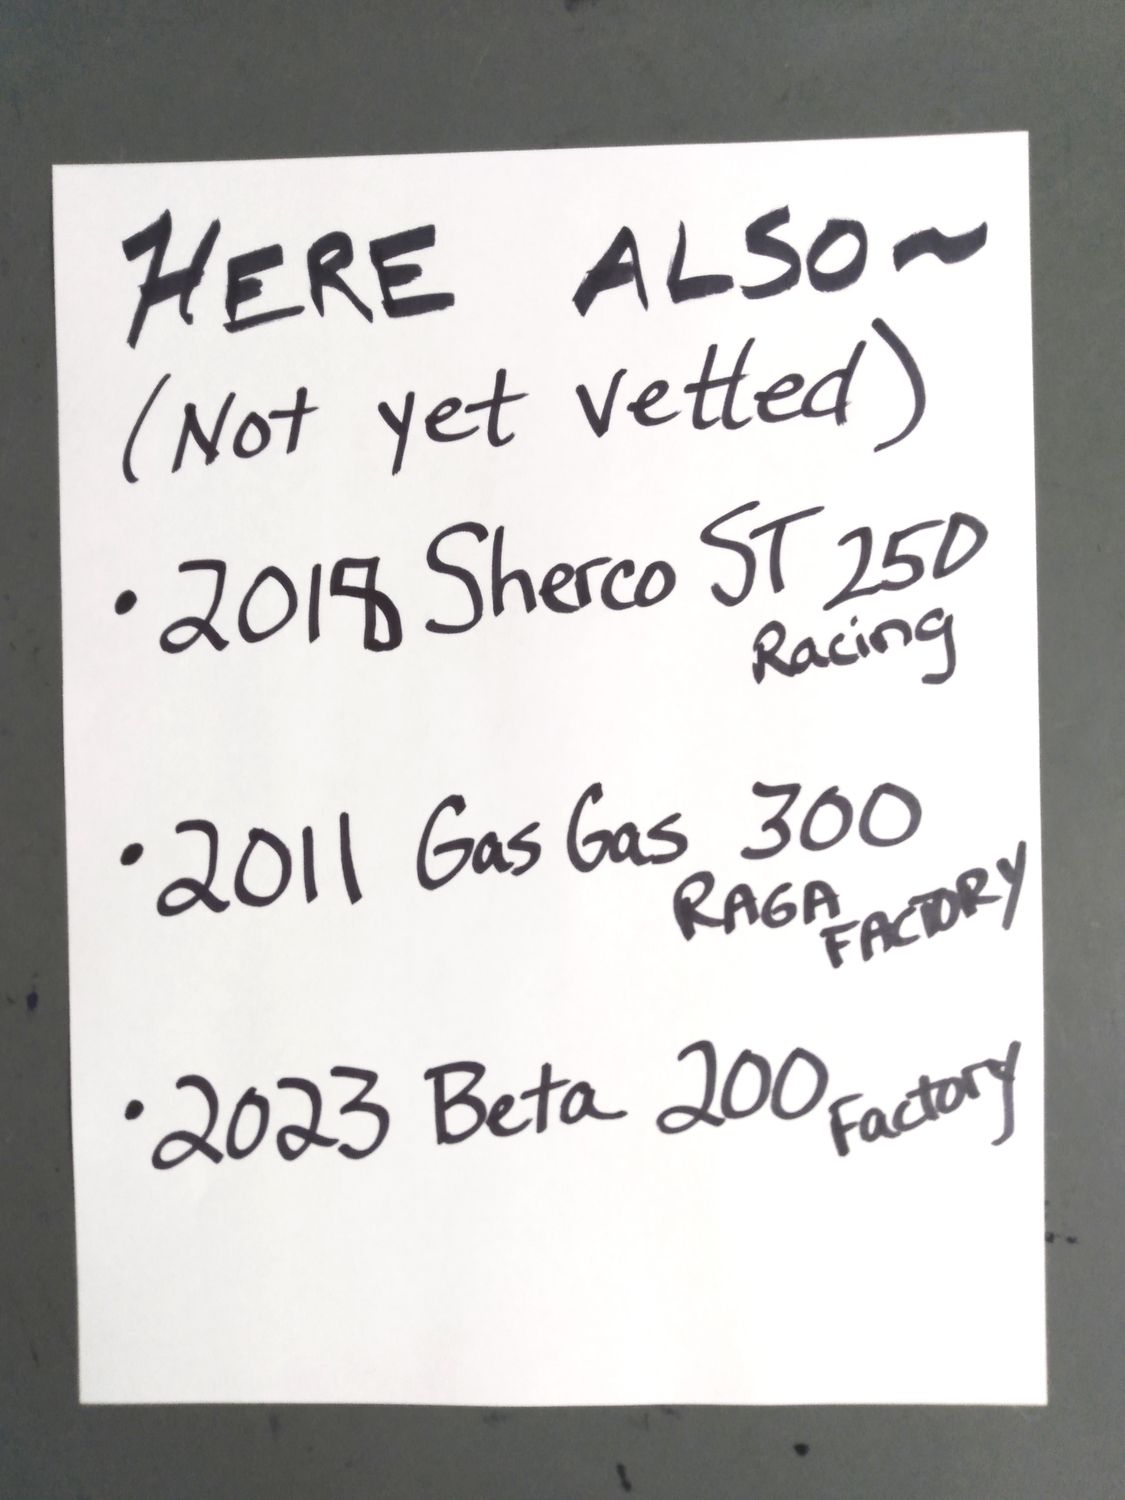 HERE ALSO~
(Not yet vetted)
• 2018 Sherco ST 250
Racing
• 2011 Gas Gas 300
RAGA
FACTORY
• 2023 Beta 200 Factory